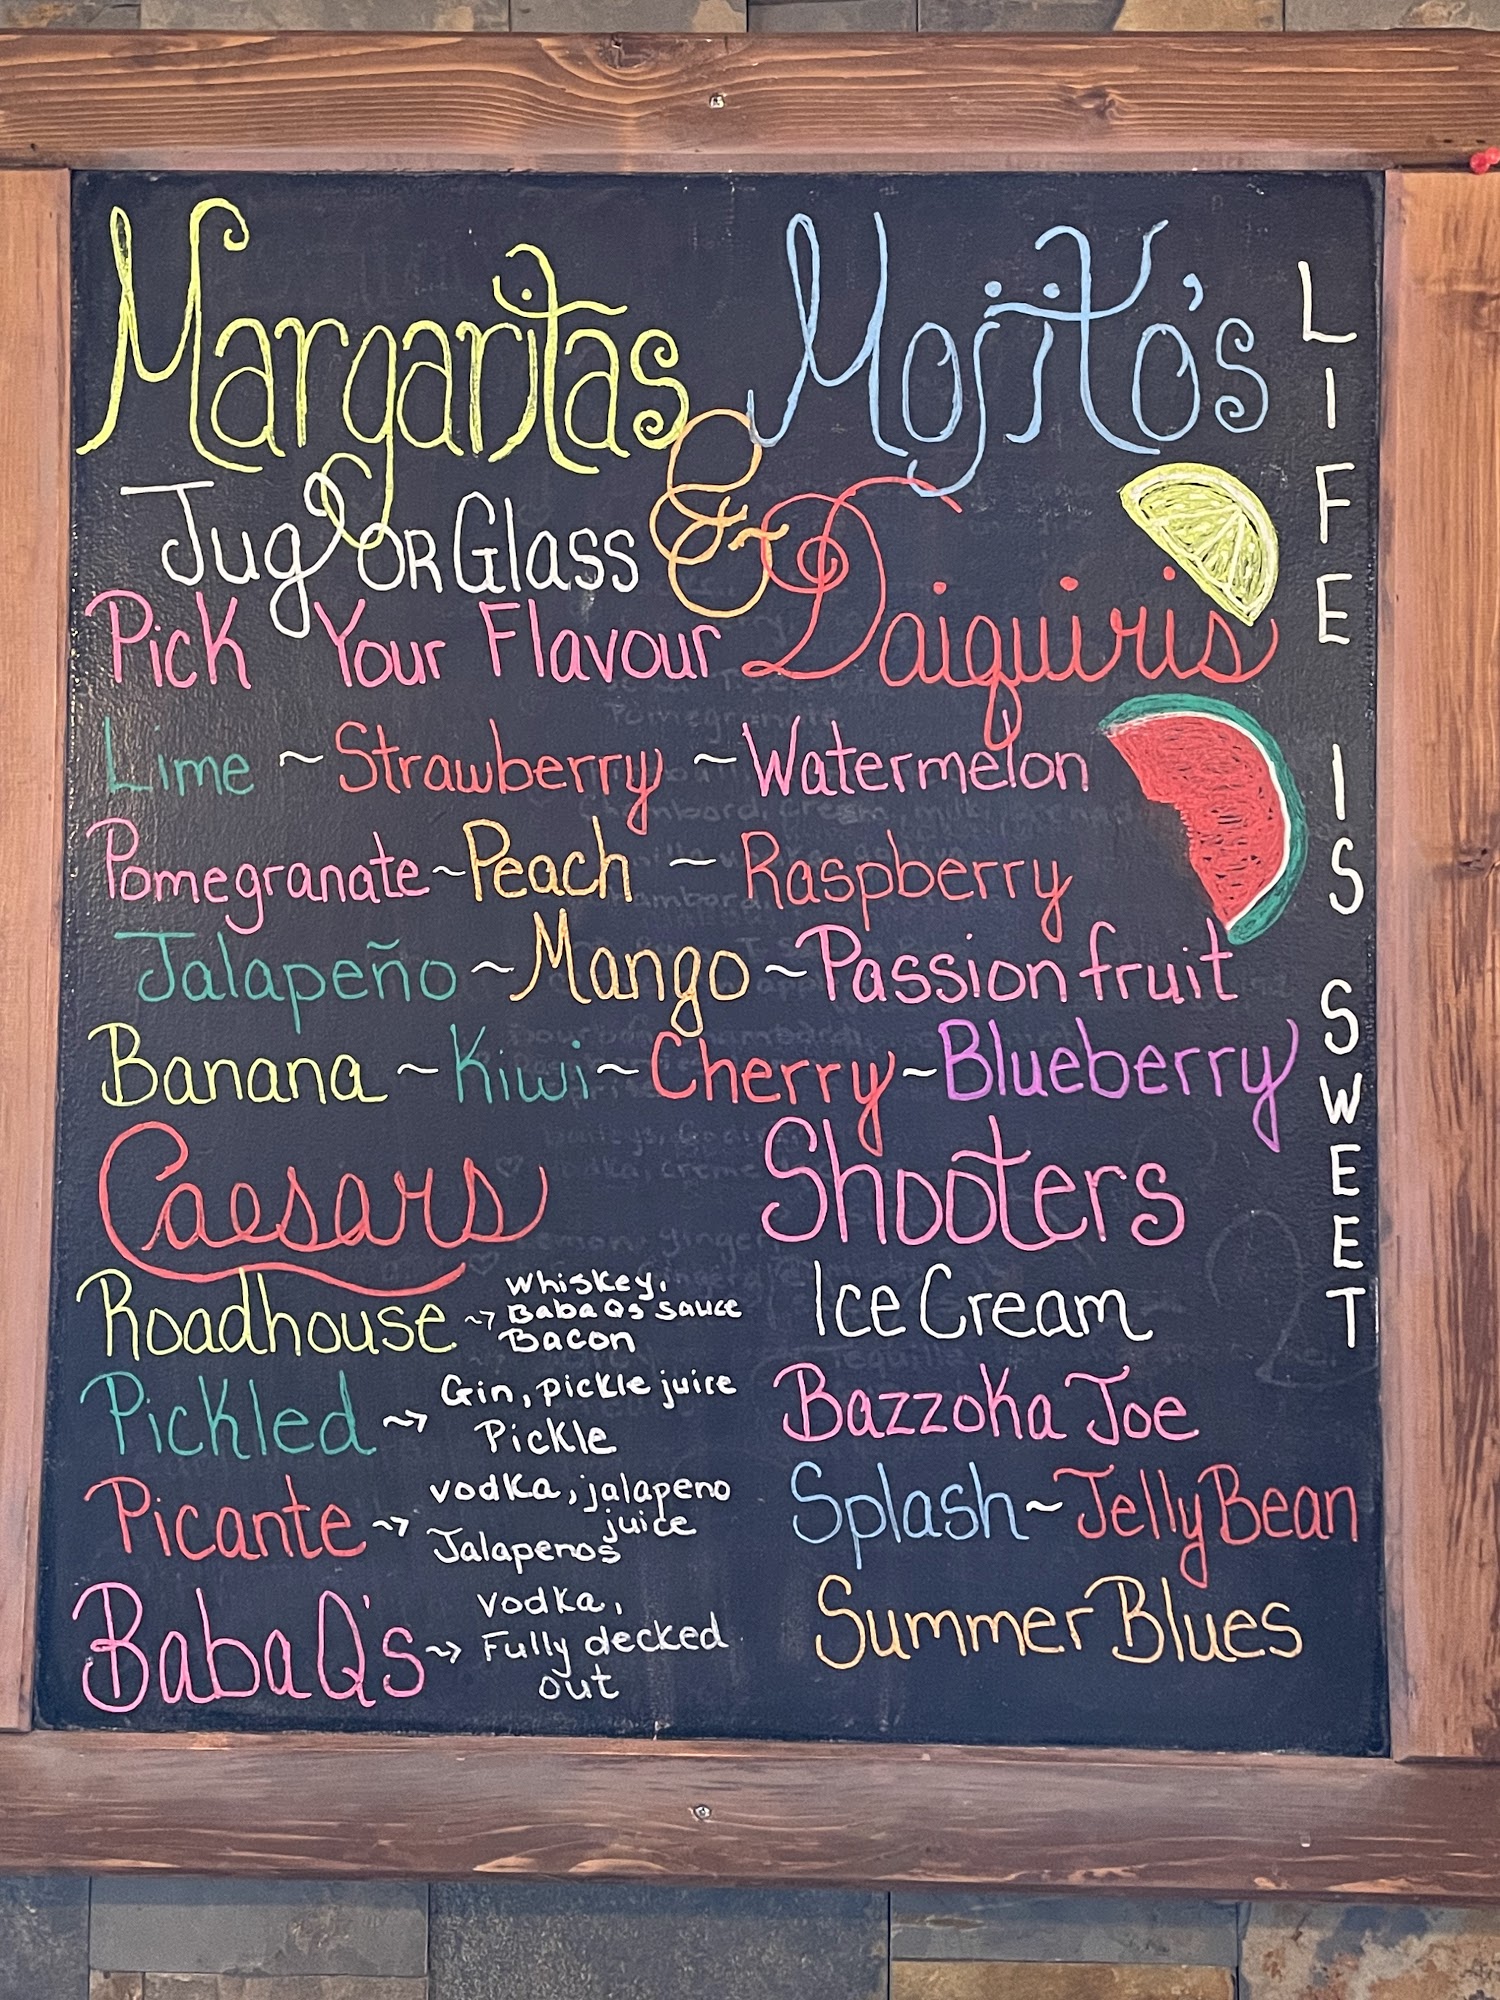 Margaritas Mojito's
Jug OR Glass & Daiquiris
Pick Your Flavour
Lime ~ Strawberry ~ Watermelon
Pomegranate ~ Peach ~ Raspberry
Jalapeño ~ Mango ~ Passion fruit
Banana ~ Kiwi ~ Cherry ~ Blueberry
Caesars
Roadhouse ~> Whiskey,
BabaQs sauce
Bacon
Pickled ~> Gin, pickle juice
Pickle
Picante ~> vodka, jalapeno
juice
Jalapenos
BabaQ's ~> vodka,
Fully decked
out
Shooters
Ice Cream
Bazzoka Joe
Splash ~ Jelly Bean
Summer Blues
LIFE IS SWEET